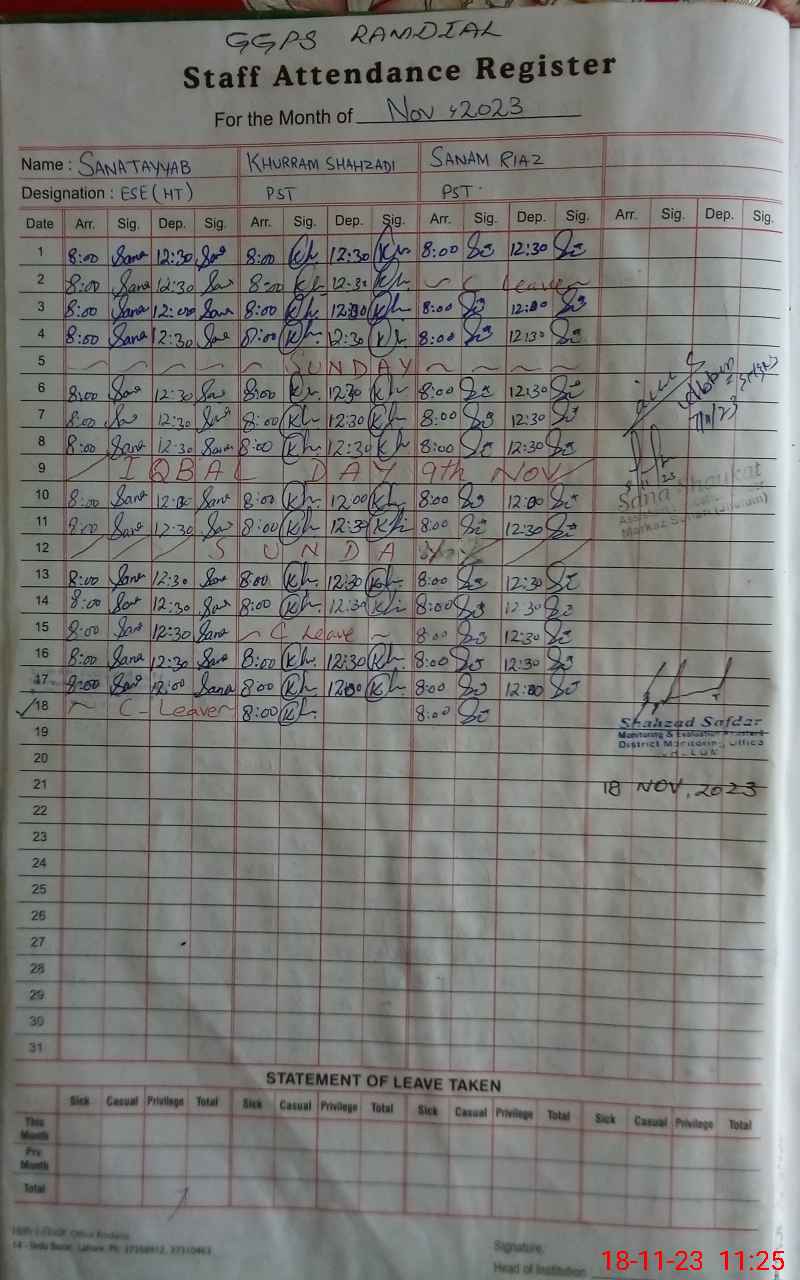 GGPS RAMDIAL
Staff Attendance Register
For the Month of Nov, 2023
Name : SANATAYYAB KHURRAM SHAHZADI SANAM RIAZ
Designation : ESE (HT) PST PST
Date Arr. Sig. Dep. Sig. Arr. Sig. Dep. Sig. Arr. Sig. Dep. Sig. Arr. Sig. Dep. Sig.
1 8:00 Sana 12:30 Sana 8:00 Kh. 12:30 Kh. 8:00 12:30
2 8:00 Sana 12:30 Sana 8:00 Kh. 12:30 Kh. ~ C Leave ~
3 8:00 Sana 12:00 Sana 8:00 Kh. 12:30 Kh. 8:00 12:00
4 8:00 Sana 12:30 Sana 8:00 Kh. 12:30 Kh. 8:00 12:30
5 ~ ~ ~ ~ ~ SUNDAY ~ ~ ~ ~
6 8:00 Sana 12:30 Sana 8:00 Kh. 12:30 Kh. 8:00 12:30
7 8:00 Sana 12:30 Sana 8:00 Kh. 12:30 Kh. 8:00 12:30
7/11/23
8 8:00 Sana 12:30 Sana 8:00 Kh. 12:30 Kh. 8:00 12:30
9 IQBAL DAY 9th NOV
10 8:00 Sana 12:00 Sana 8:00 Kh. 12:00 Kh. 8:00 12:00
Sana Shaukat
11 8:00 Sana 12:30 Sana 8:00 Kh. 12:30 Kh. 8:00 12:30
12 SUNDAY
13 8:00 Sana 12:30 Sana 8:00 Kh. 12:30 Kh. 8:00 12:30
14 8:00 Sana 12:30 Sana 8:00 Kh. 12:30 Kh. 8:00 12:30
15 8:00 Sana 12:30 Sana ~ C Leave ~ 8:00 12:30
16 8:00 Sana 12:30 Sana 8:00 Kh. 12:30 Kh. 8:00 12:30
17 8:00 Sana 12:00 Sana 8:00 Kh. 12:00 Kh. 8:00 12:00
18 ~ C- Leave 8:00 Kh. 8:00
Shahzad Safdar
Monitoring & Evaluation
District Monitoring Office
19
20
21
18 NOV, 2023
22
23
24
25
26
27
28
29
30
31
STATEMENT OF LEAVE TAKEN
Sick Casual Privilege Total Sick Casual Privilege Total Sick Casual Privilege Total Sick Casual Privilege Total
This Month
Prv Month
Total
14 - Urdu Bazar, Lahore. Ph:
Signature.
Head of Institution
18-11-23 11:25